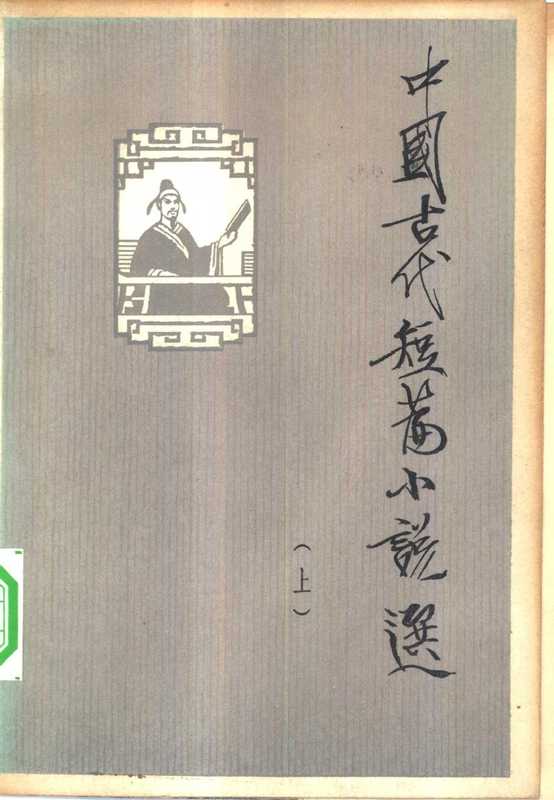 中國古代短篇小說選
（上）